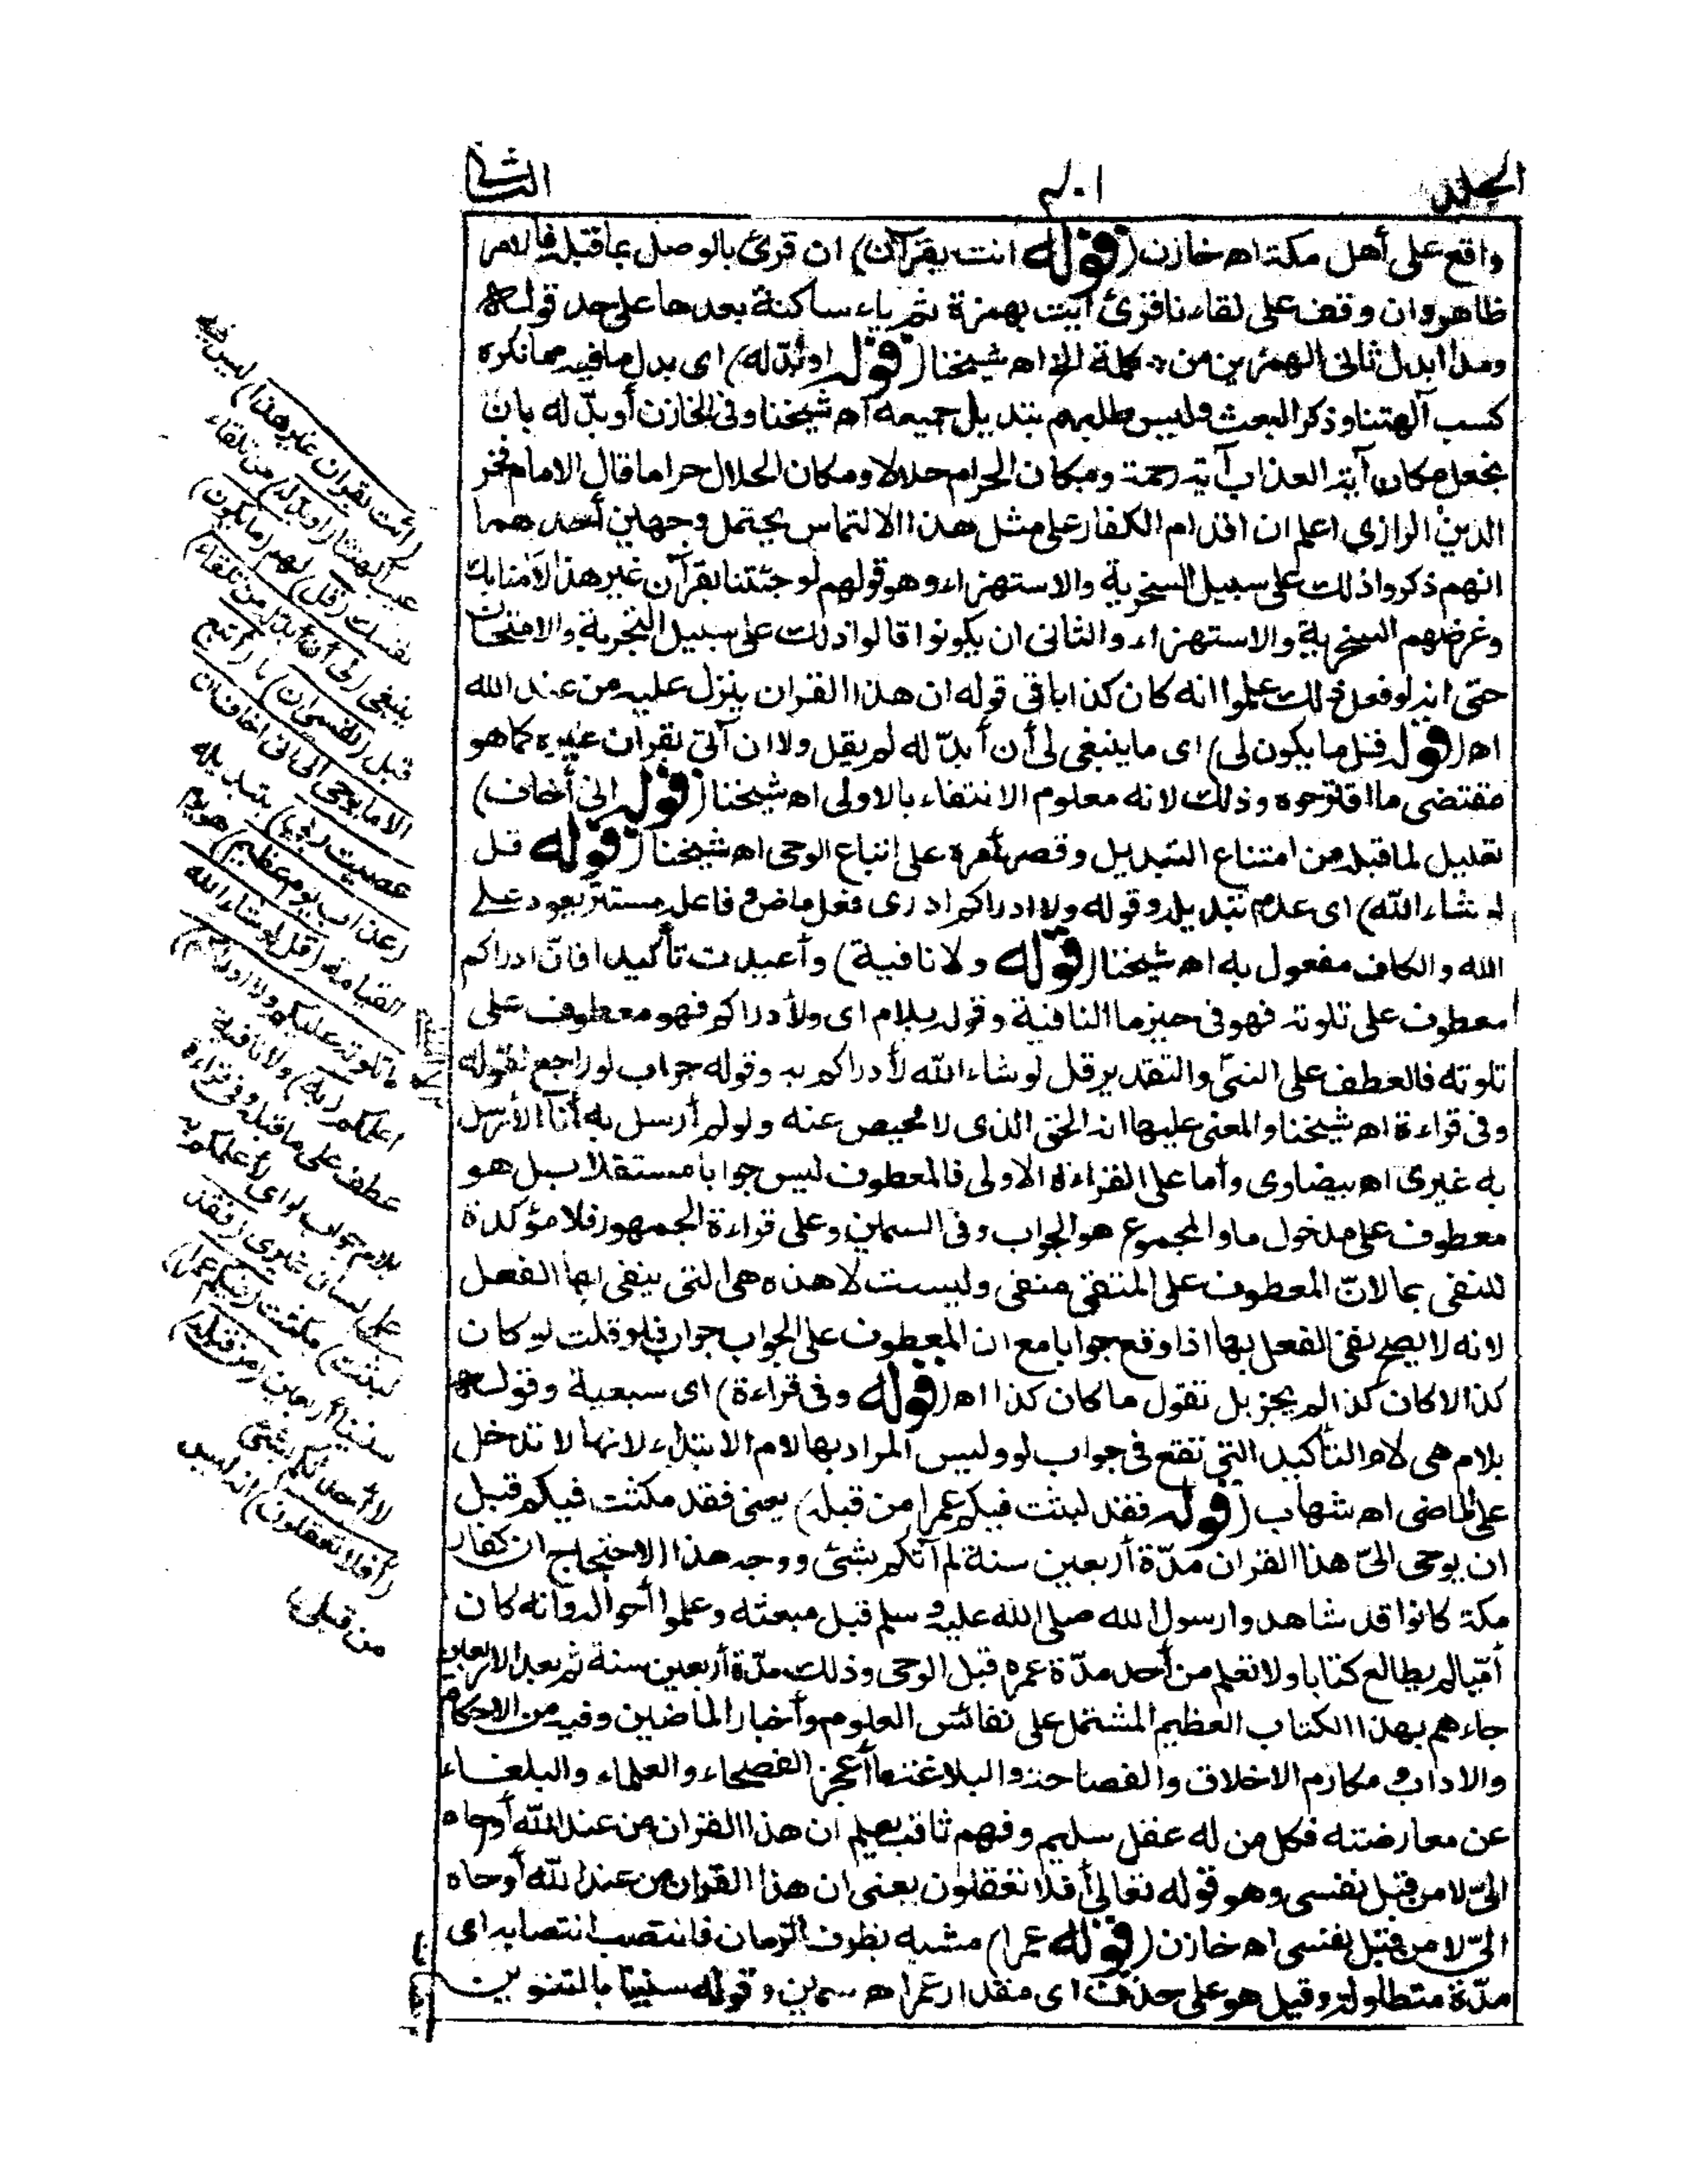 الجلد
٤٠١
الثانى
واقع على أهل مكة اه خازن (قوله ائت بقرآن) ان قرئ بالوصل بما قبله فالامر
ظاهر وان وقف على لقاءنا قرئ آيت بهمزة ثم ياء ساكنة بعدها على حد قوله
ومدا ابدل ثانى الهمزين من * كلمة الخ اه شيخنا (قوله او بدّله) اى بدل ما فيه مما نكره
كسب آلهتنا وذكر البعث وليس طلبهم تبديل جميعه اه شيخنا وفى الخازن أو بدّله بان
تجعل مكان آية العذاب آية رحمة ومكان الحرام حلالا ومكان الحلال حراما قال الامام فخر
الدين الرازي اعلم ان اقدام الكفار على مثل هذا الالتماس يحتمل وجهين أحدهما
انهم ذكروا ذلك على سبيل السخرية والاستهزاء وهو قولهم لو جئتنا بقرآن غير هذا لآمنا بك
وغرضهم السخرية والاستهزاء والثانى ان يكونوا قالوا ذلك على سبيل التجربة والامتحان
حتى انه لو فعل ذلك علموا انه كان كذابا فى قوله ان هذا القران ينزل عليه من عند الله
اه (قوله قل ما يكون لى) اى ما ينبغى لى أن أبدّله لم يقل ولا ان آتى بقران غيره كما هو
مقتضى ما اقترحوه وذلك لانه معلوم الانتفاء بالاولى اه شيخنا (قوله انى أخاف)
تعليل لما قبله من امتناع التبديل وقصر أمره على اتباع الوحى اه شيخنا (قوله قل
لو شاء الله) اى عدم تبديله وقوله ولا ادراكم ادرى فعل ماض وفاعله مستتر يعود على
الله والكاف مفعول به اه شيخنا (قوله ولا نافية) وأعيدت تأكيدا فانّ ادراكم
معطوف على تلوته فهو فى حيز ما النافية وقوله بلام اى ولأدراكم فهو معطوف على
تلوته فالعطف على النفى والتقدير قل لو شاء الله لأدراكم به وقوله جواب لو راجع لقوله
وفى قراءة اه شيخنا والمعنى عليها انه الحق الذى لا محيص عنه ولو لم أرسل به أنا لأرسل
به غيرى اه بيضاوى وأما على القراءة الاولى فالمعطوف ليس جوابا مستقلا بل هو
معطوف على مدخول ما والمجموع هو الجواب وفى السمين وعلى قراءة الجمهور فلا مؤكدة
للنفى بما لانّ المعطوف على المنفى منفى وليست لا هذه هى التى ينفى بها الفعل
لانه لا يصح نفى الفعل بها اذا وقع جوابا مع ان المعطوف على الجواب جواب فلو قلت لو كان
كذا لا كان كذا لم يجز بل تقول ما كان كذا اه (قوله وفى قراءة) اى سبعية وقوله
بلام هى لام التأكيد التى تقع فى جواب لو وليس المراد بها لام الابتداء لانها لا تدخل
على الماضى اه شهاب (قوله فقد لبثت فيكم عمرا من قبله) يعنى فقد مكثت فيكم قبل
ان يوحى الىّ هذا القران مدّة أربعين سنة لم آتكم بشئ ووجه هذا الاحتجاج ان كفار
مكة كانوا قد شاهدوا رسول الله صلى الله عليه وسلم قبل مبعثه وعلموا أحواله وانه كان
أمّيا لم يطالع كتابا ولا تعلم من أحد مدّة عمره قبل الوحى وذلك مدّة أربعين سنة ثم بعد الاربعين
جاءهم بهذا الكتاب العظيم المشتمل على نفائس العلوم وأخبار الماضين وفيه من الاحكام
والاداب ومكارم الاخلاق والفصاحة والبلاغة ما أعجز الفصحاء والعلماء والبلغاء
عن معارضته فكل من له عقل سليم وفهم ثاقب يعلم ان هذا القران من عند الله أوحاه
الىّ لا من قبل نفسى وهو قوله تعالى أفلا تعقلون يعنى ان هذا القران من عند الله أوحاه
الىّ لا من قبل نفسى اه خازن (قوله عمرا) مشبه بظرف الزمان فانتصب انتصابه اى
مدّة متطاولة وقيل هو على حذف اى مقدار عمر اه سمين وقوله سنينا بالتنوين
(ائت بقران غير هذا) ليس فيه
عيب آلهتنا (او بدّله) من تلقاء
نفسك (قل) لهم (ما يكون)
ينبغى (لى أن أبدّله من تلقاء)
قبل (نفسى ان) ما (أتبع
الا ما يوحى الى انى اخاف ان
عصيت ربى) بتبديله
(عذاب يوم عظيم) هو يوم
القيامة (قل لو شاء الله
ما تلوته عليكم ولا ادراكم)
اعلمكم (به) ولا نافية
عطف على ما قبله وفى قراءة
بلام جواب لو اى لأعلمكم به
على لسان غيرى (فقد
لبثت) مكثت (فيكم عمرا)
سنينا أربعين (من قبله)
لا أحدثكم بشئ
(أفلا تعقلون) انه ليس
من قبلى